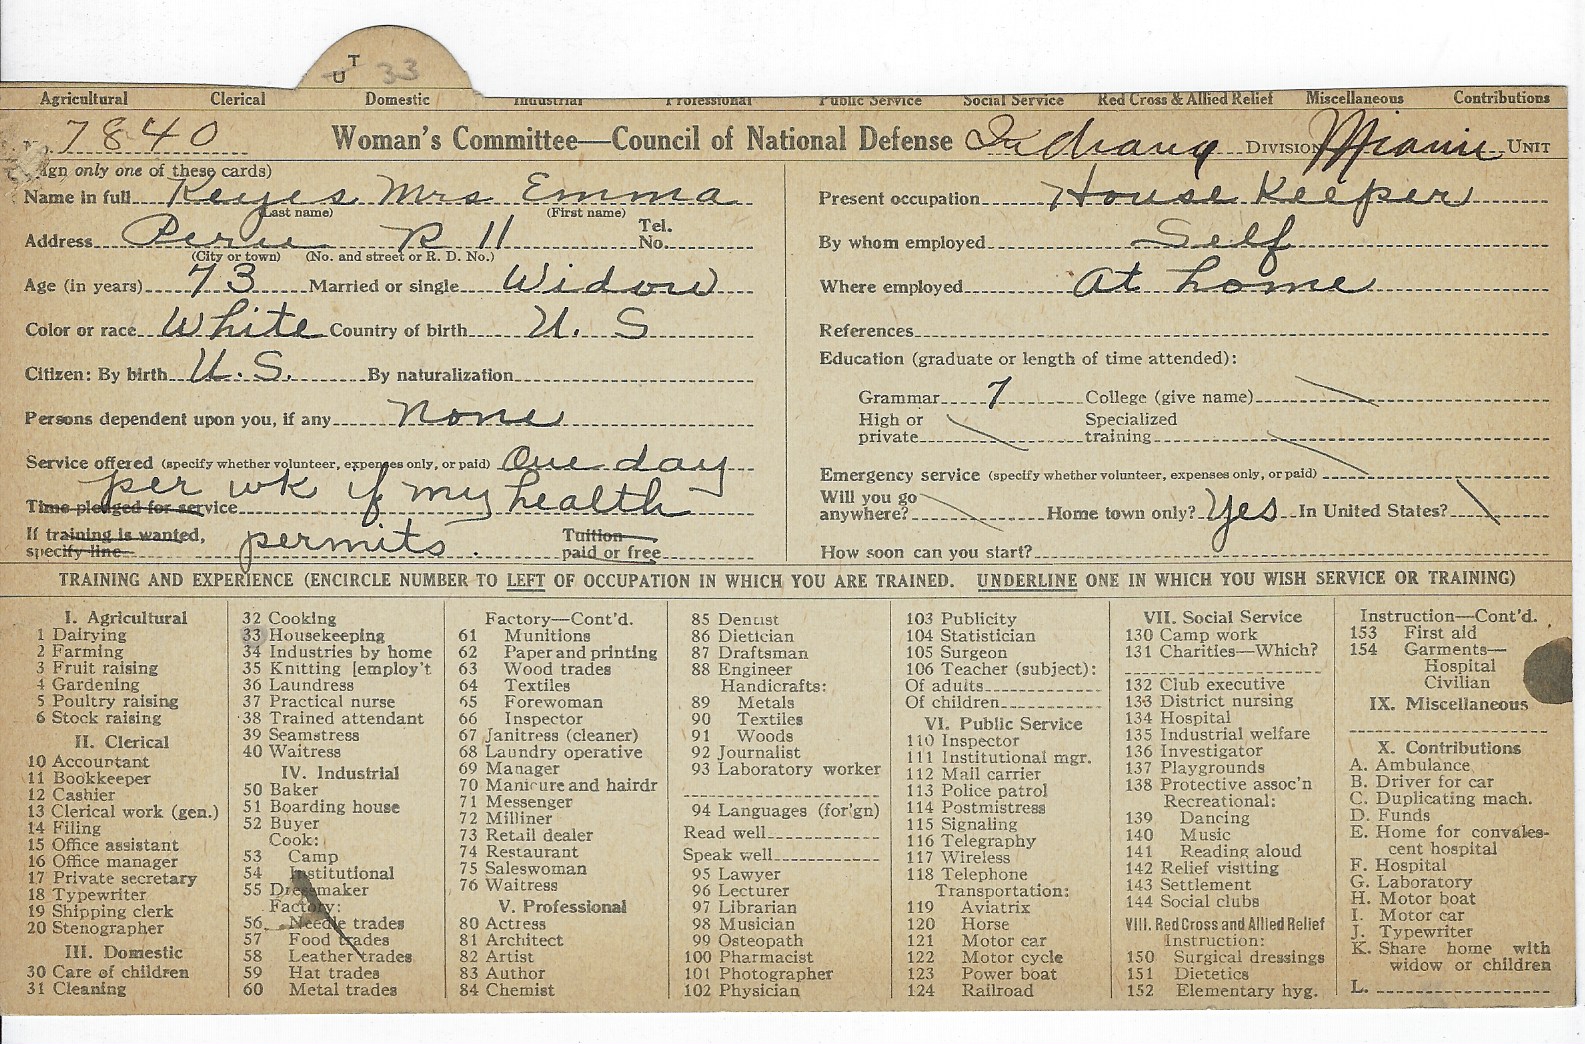 U T 33
Agricultural Clerical Domestic Industrial Professional Public Service Social Service Red Cross & Allied Relief Miscellaneous Contributions
7840 Woman's Committee—Council of National Defense Indiana DIVISION Miami UNIT
ign only one of these cards)
Name in full Keyes Mrs Emma
(Last name) (First name)
Address Peru R 11 Tel. No.
(City or town) (No. and street or R. D. No.)
Age (in years) 73 Married or single Widow
Color or race White Country of birth U. S
Citizen: By birth U.S. By naturalization
Persons dependent upon you, if any None
Service offered (specify whether volunteer, expenses only, or paid) One day
per wk if my health
Time pledged for service
If training is wanted, specify line permits. Tuition paid or free
Present occupation House Keeper
By whom employed Self
Where employed At home
References
Education (graduate or length of time attended):
Grammar 7 College (give name)
High or private Specialized training
Emergency service (specify whether volunteer, expenses only, or paid)
Will you go anywhere? Home town only? Yes In United States?
How soon can you start?
TRAINING AND EXPERIENCE (ENCIRCLE NUMBER TO LEFT OF OCCUPATION IN WHICH YOU ARE TRAINED. UNDERLINE ONE IN WHICH YOU WISH SERVICE OR TRAINING)
I. Agricultural
1 Dairying
2 Farming
3 Fruit raising
4 Gardening
5 Poultry raising
6 Stock raising
II. Clerical
10 Accountant
11 Bookkeeper
12 Cashier
13 Clerical work (gen.)
14 Filing
15 Office assistant
16 Office manager
17 Private secretary
18 Typewriter
19 Shipping clerk
20 Stenographer
III. Domestic
30 Care of children
31 Cleaning
32 Cooking
33 Housekeeping
34 Industries by home
35 Knitting [employ't
36 Laundress
37 Practical nurse
38 Trained attendant
39 Seamstress
40 Waitress
IV. Industrial
50 Baker
51 Boarding house
52 Buyer
Cook:
53 Camp
54 Institutional
55 Dressmaker
Factory:
56 Needle trades
57 Food trades
58 Leather trades
59 Hat trades
60 Metal trades
Factory—Cont'd.
61 Munitions
62 Paper and printing
63 Wood trades
64 Textiles
65 Forewoman
66 Inspector
67 Janitress (cleaner)
68 Laundry operative
69 Manager
70 Manicure and hairdr
71 Messenger
72 Milliner
73 Retail dealer
74 Restaurant
75 Saleswoman
76 Waitress
V. Professional
80 Actress
81 Architect
82 Artist
83 Author
84 Chemist
85 Dentist
86 Dietician
87 Draftsman
88 Engineer
Handicrafts:
89 Metals
90 Textiles
91 Woods
92 Journalist
93 Laboratory worker
94 Languages (for'gn)
Read well
Speak well
95 Lawyer
96 Lecturer
97 Librarian
98 Musician
99 Osteopath
100 Pharmacist
101 Photographer
102 Physician
103 Publicity
104 Statistician
105 Surgeon
106 Teacher (subject):
Of adults
Of children
VI. Public Service
110 Inspector
111 Institutional mgr.
112 Mail carrier
113 Police patrol
114 Postmistress
115 Signaling
116 Telegraphy
117 Wireless
118 Telephone
Transportation:
119 Aviatrix
120 Horse
121 Motor car
122 Motor cycle
123 Power boat
124 Railroad
VII. Social Service
130 Camp work
131 Charities—Which?
132 Club executive
133 District nursing
134 Hospital
135 Industrial welfare
136 Investigator
137 Playgrounds
138 Protective assoc'n
Recreational:
139 Dancing
140 Music
141 Reading aloud
142 Relief visiting
143 Settlement
144 Social clubs
VIII. Red Cross and Allied Relief
Instruction:
150 Surgical dressings
151 Dietetics
152 Elementary hyg.
Instruction—Cont'd.
153 First aid
154 Garments—
Hospital
Civilian
IX. Miscellaneous
X. Contributions
A. Ambulance
B. Driver for car
C. Duplicating mach.
D. Funds
E. Home for convales-
cent hospital
F. Hospital
G. Laboratory
H. Motor boat
I. Motor car
J. Typewriter
K. Share home with
widow or children
L.